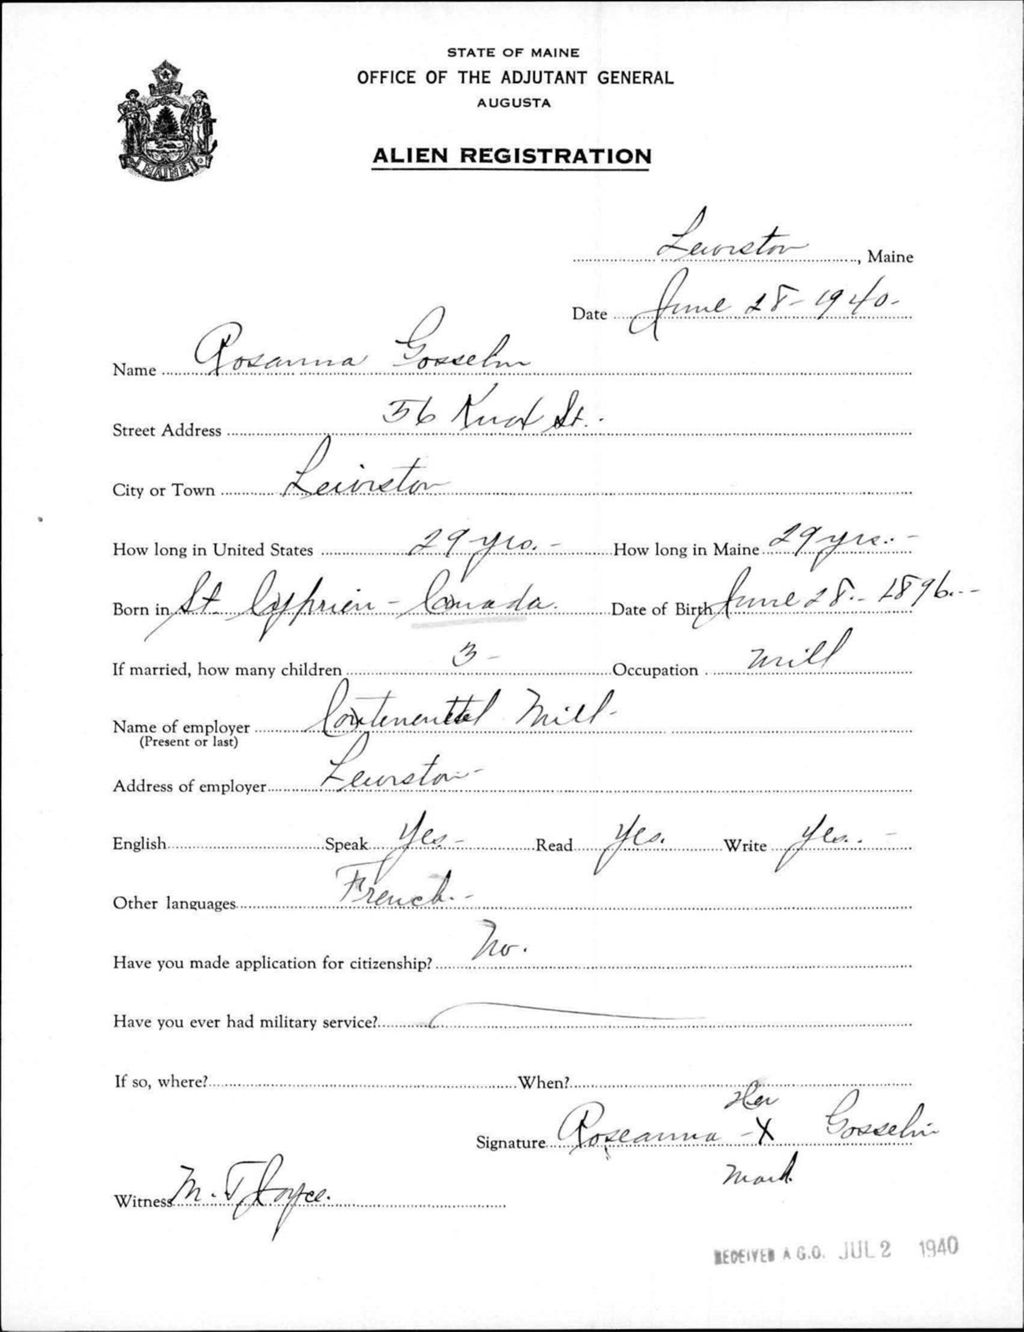 STATE OF MAINE
OFFICE OF THE ADJUTANT GENERAL
AUGUSTA
ALIEN REGISTRATION
MAINE
Lewiston, Maine
Date June 28-1940-
Name Rosanna Gosselin
Street Address 56 Knox St.
City or Town Lewiston
How long in United States 29 yrs. - How long in Maine 29 yrs. -
Born in St. Cyprien - Canada. Date of Birth June 28. - 1896. -
If married, how many children 3 - Occupation Mill
Name of employer Continental Mill -
(Present or last)
Address of employer Lewiston -
English Speak Yes - Read Yes. Write Yes. -
Other languages French. -
Have you made application for citizenship? No.
Have you ever had military service?
If so, where? When?
Her
Signature Roseanna - X Gosselin
Mark
Witness M. T. Joyce.
RECEIVED A.G.O. JUL 2 1940